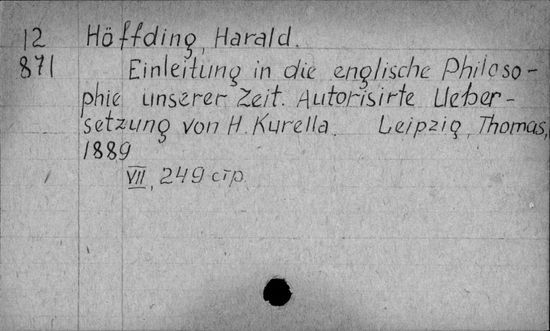 12 Höffding, Harald.
871 Einleitung in die englische Philoso-
phie unserer Zeit. Autorisirte Ueber-
setzung von H. Kurella. Leipzig, Thomas,
1889
VII, 249 стр.